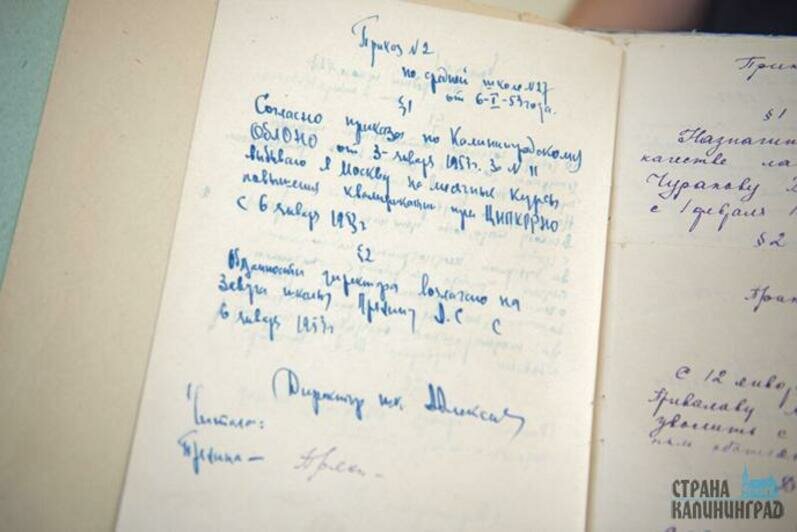 Приказ N 2
по средней школе N 27
от 6-I-53 года.
§1
Согласно приказа по Калининградскому
ОБЛОНО от 3-января 1953г. за N 11
выбываю в Москву на месячные курсы
повышения квалификации при
с 6 января 1953г
§2
Обязанности директора возлагаю на
Завуча школы А.С с
6 января 1953г.
Директор шк.
Читала:
При
§1
Назначит
качестве ла
Чуракову
с 1 февраля 1
§2
С 12 янва
уволить с
СТРАНА
КАЛИНИНГРАД